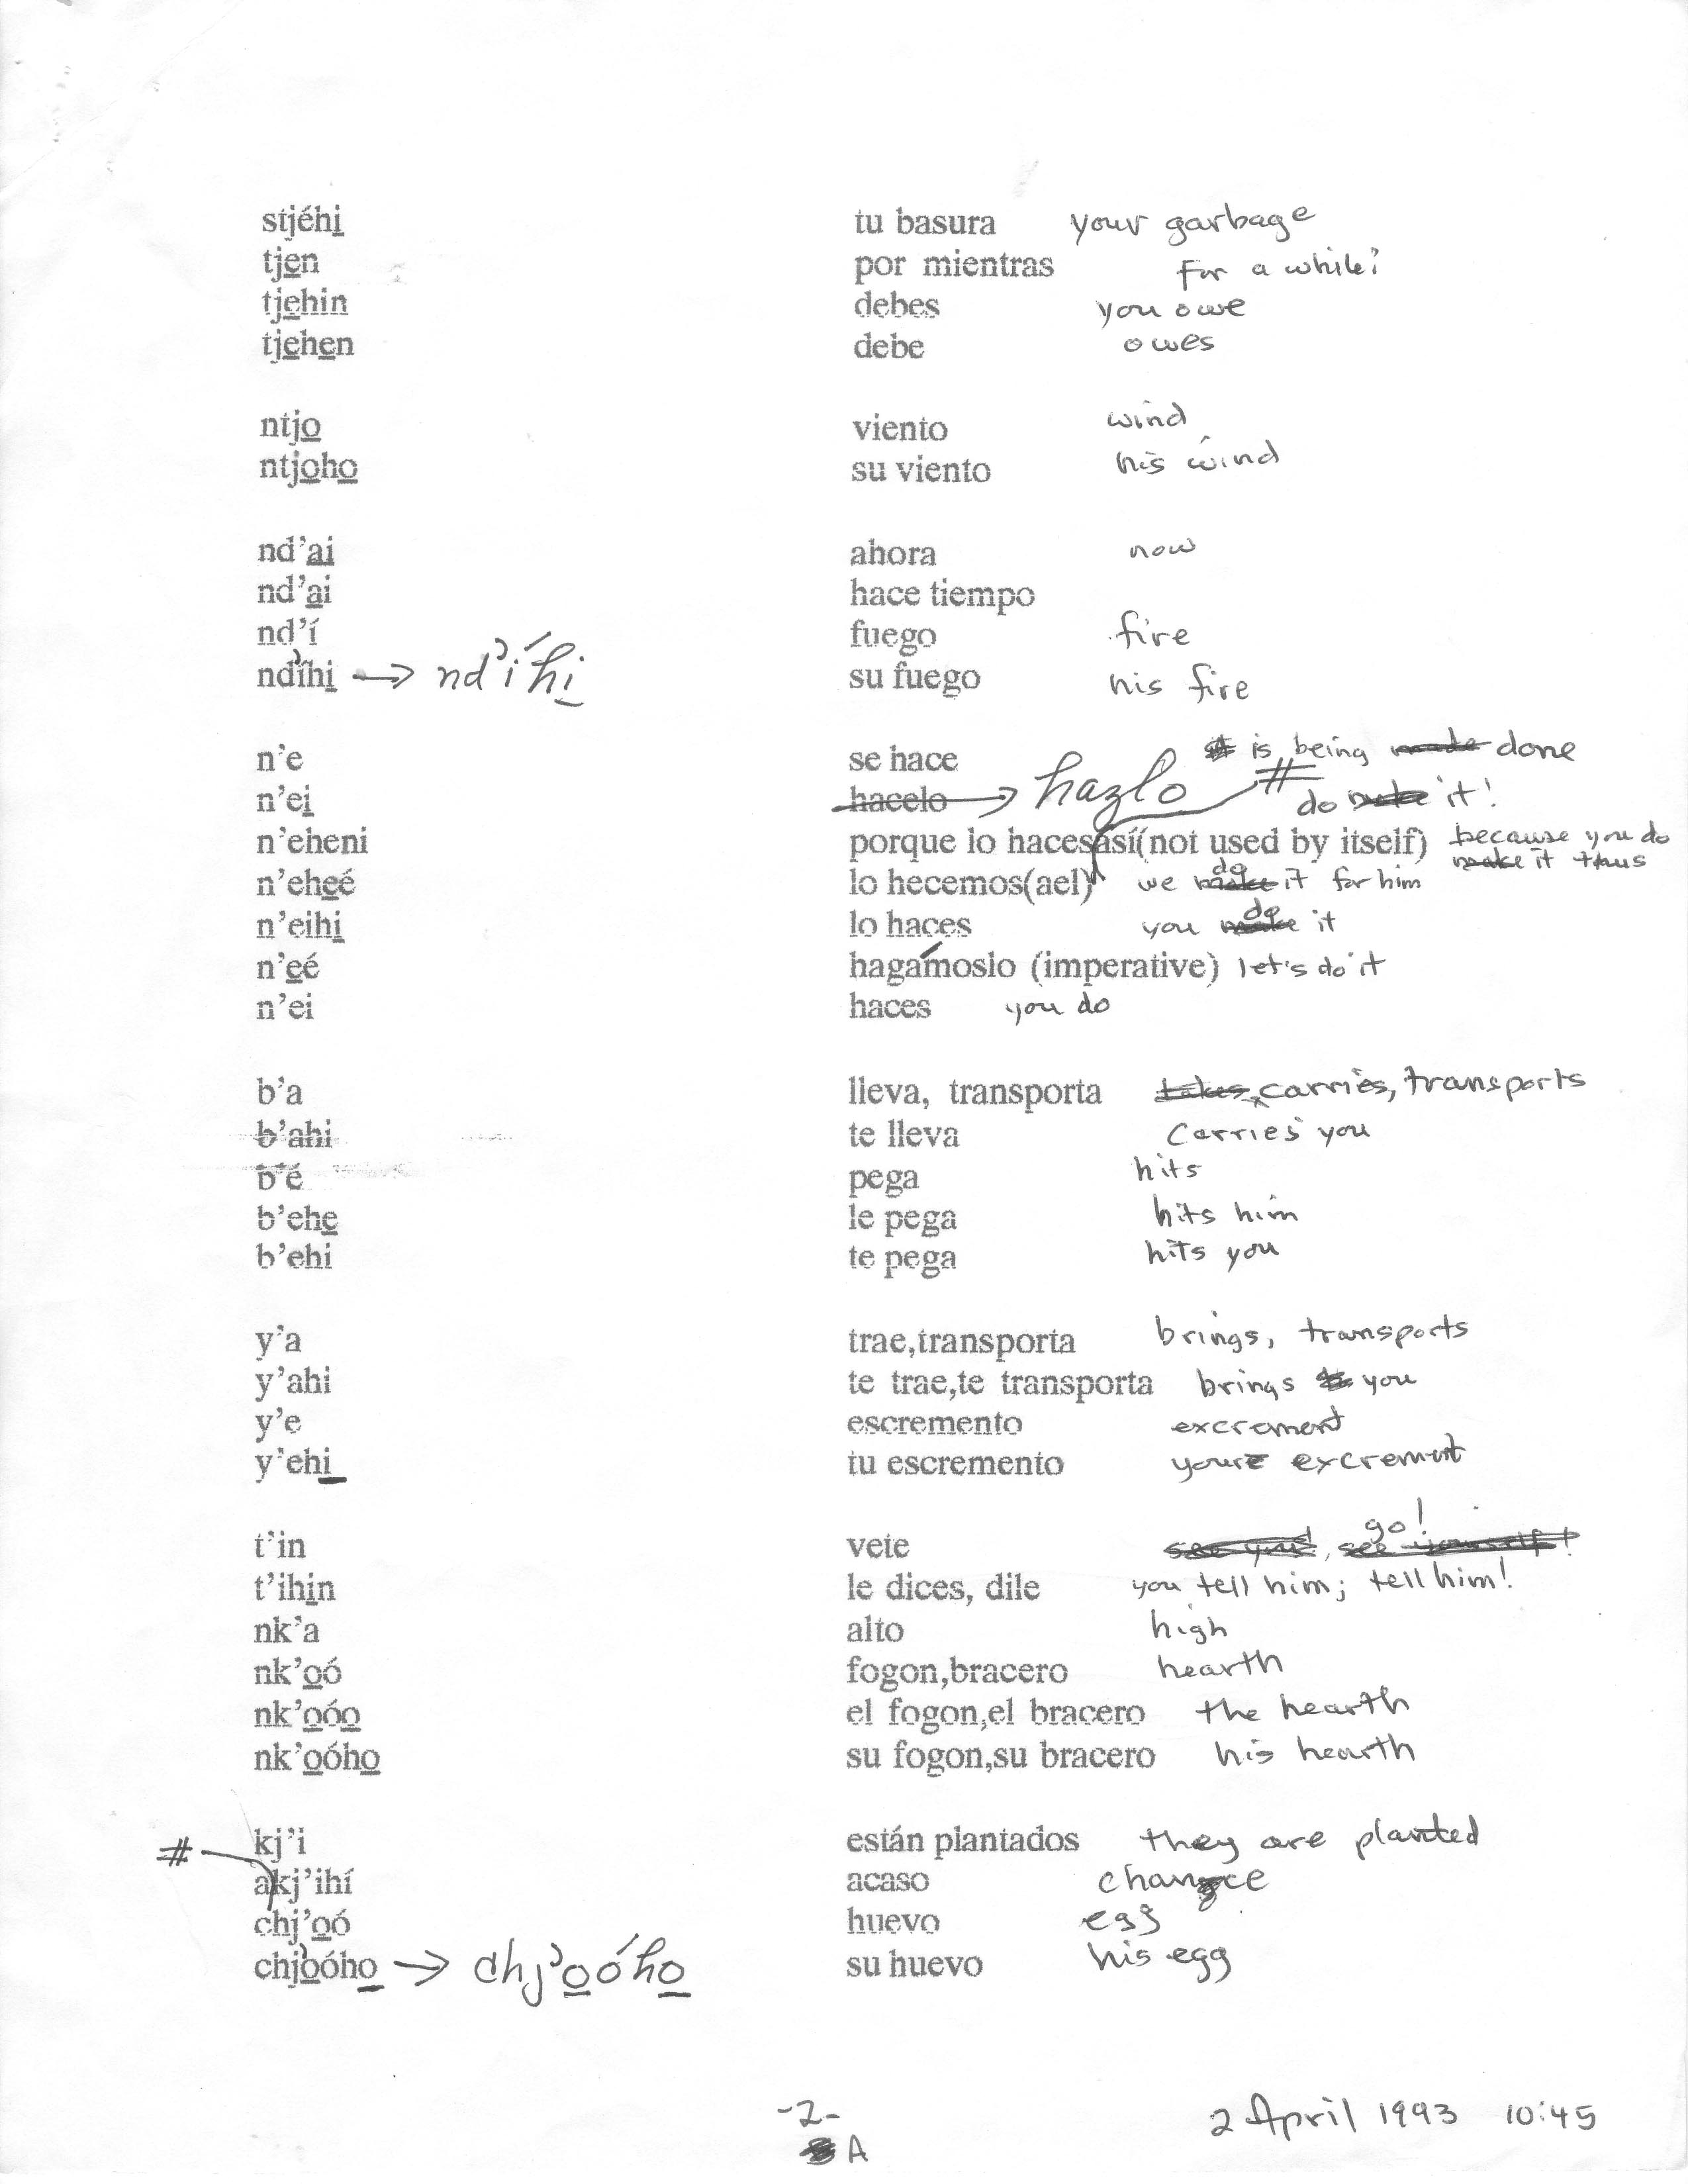 stjéhi̲ tu basura your garbage
tje̲n por mientras for a while?
tje̲hin debes you owe
tje̲he̲n debe owes
ntjo̲ viento wind
ntjo̲ho̲ su viento his wind
nd’a̲i̲ ahora now
nd’a̲i hace tiempo
nd’í fuego fire
nd’íhi̲ → nd’íhi̲ su fuego his fire
n’e se hace is being made done
n’ei̲ hacelo → hazlo # do make it!
n’eheni porque lo hacesasí(not used by itself) because you do make it thus
n’ehe̲é lo hecemos(ael) we make do it for him
n’eihi̲ lo haces you make do it
n’e̲é hagámoslo (imperative) let's do it
n’ei haces you do
b’a lleva, transporta takes, carries, transports
b’ahi te lleva carries you
b’é pega hits
b’ehe̲ le pega hits him
b’ehi te pega hits you
y’a trae,transporta brings, transports
y’ahi te trae,te transporta brings you
y’e escremento excrement
y’ehi̲ tu escremento your excrement
t’in vete see you!, see yourself! go!
t’ihi̲n le dices, dile you tell him; tell him!
nk’a alto high
nk’o̲ó fogon,bracero hearth
nk’o̲óo̲ el fogon,el bracero the hearth
nk’o̲óho̲ su fogon,su bracero his hearth
# kj’i están plantados they are planted
akj’ihí acaso chance
chj’o̲ó huevo egg
chj’o̲óho̲ → chj’o̲óho̲ su huevo his egg
-2- 2 April 1993 10:45
A